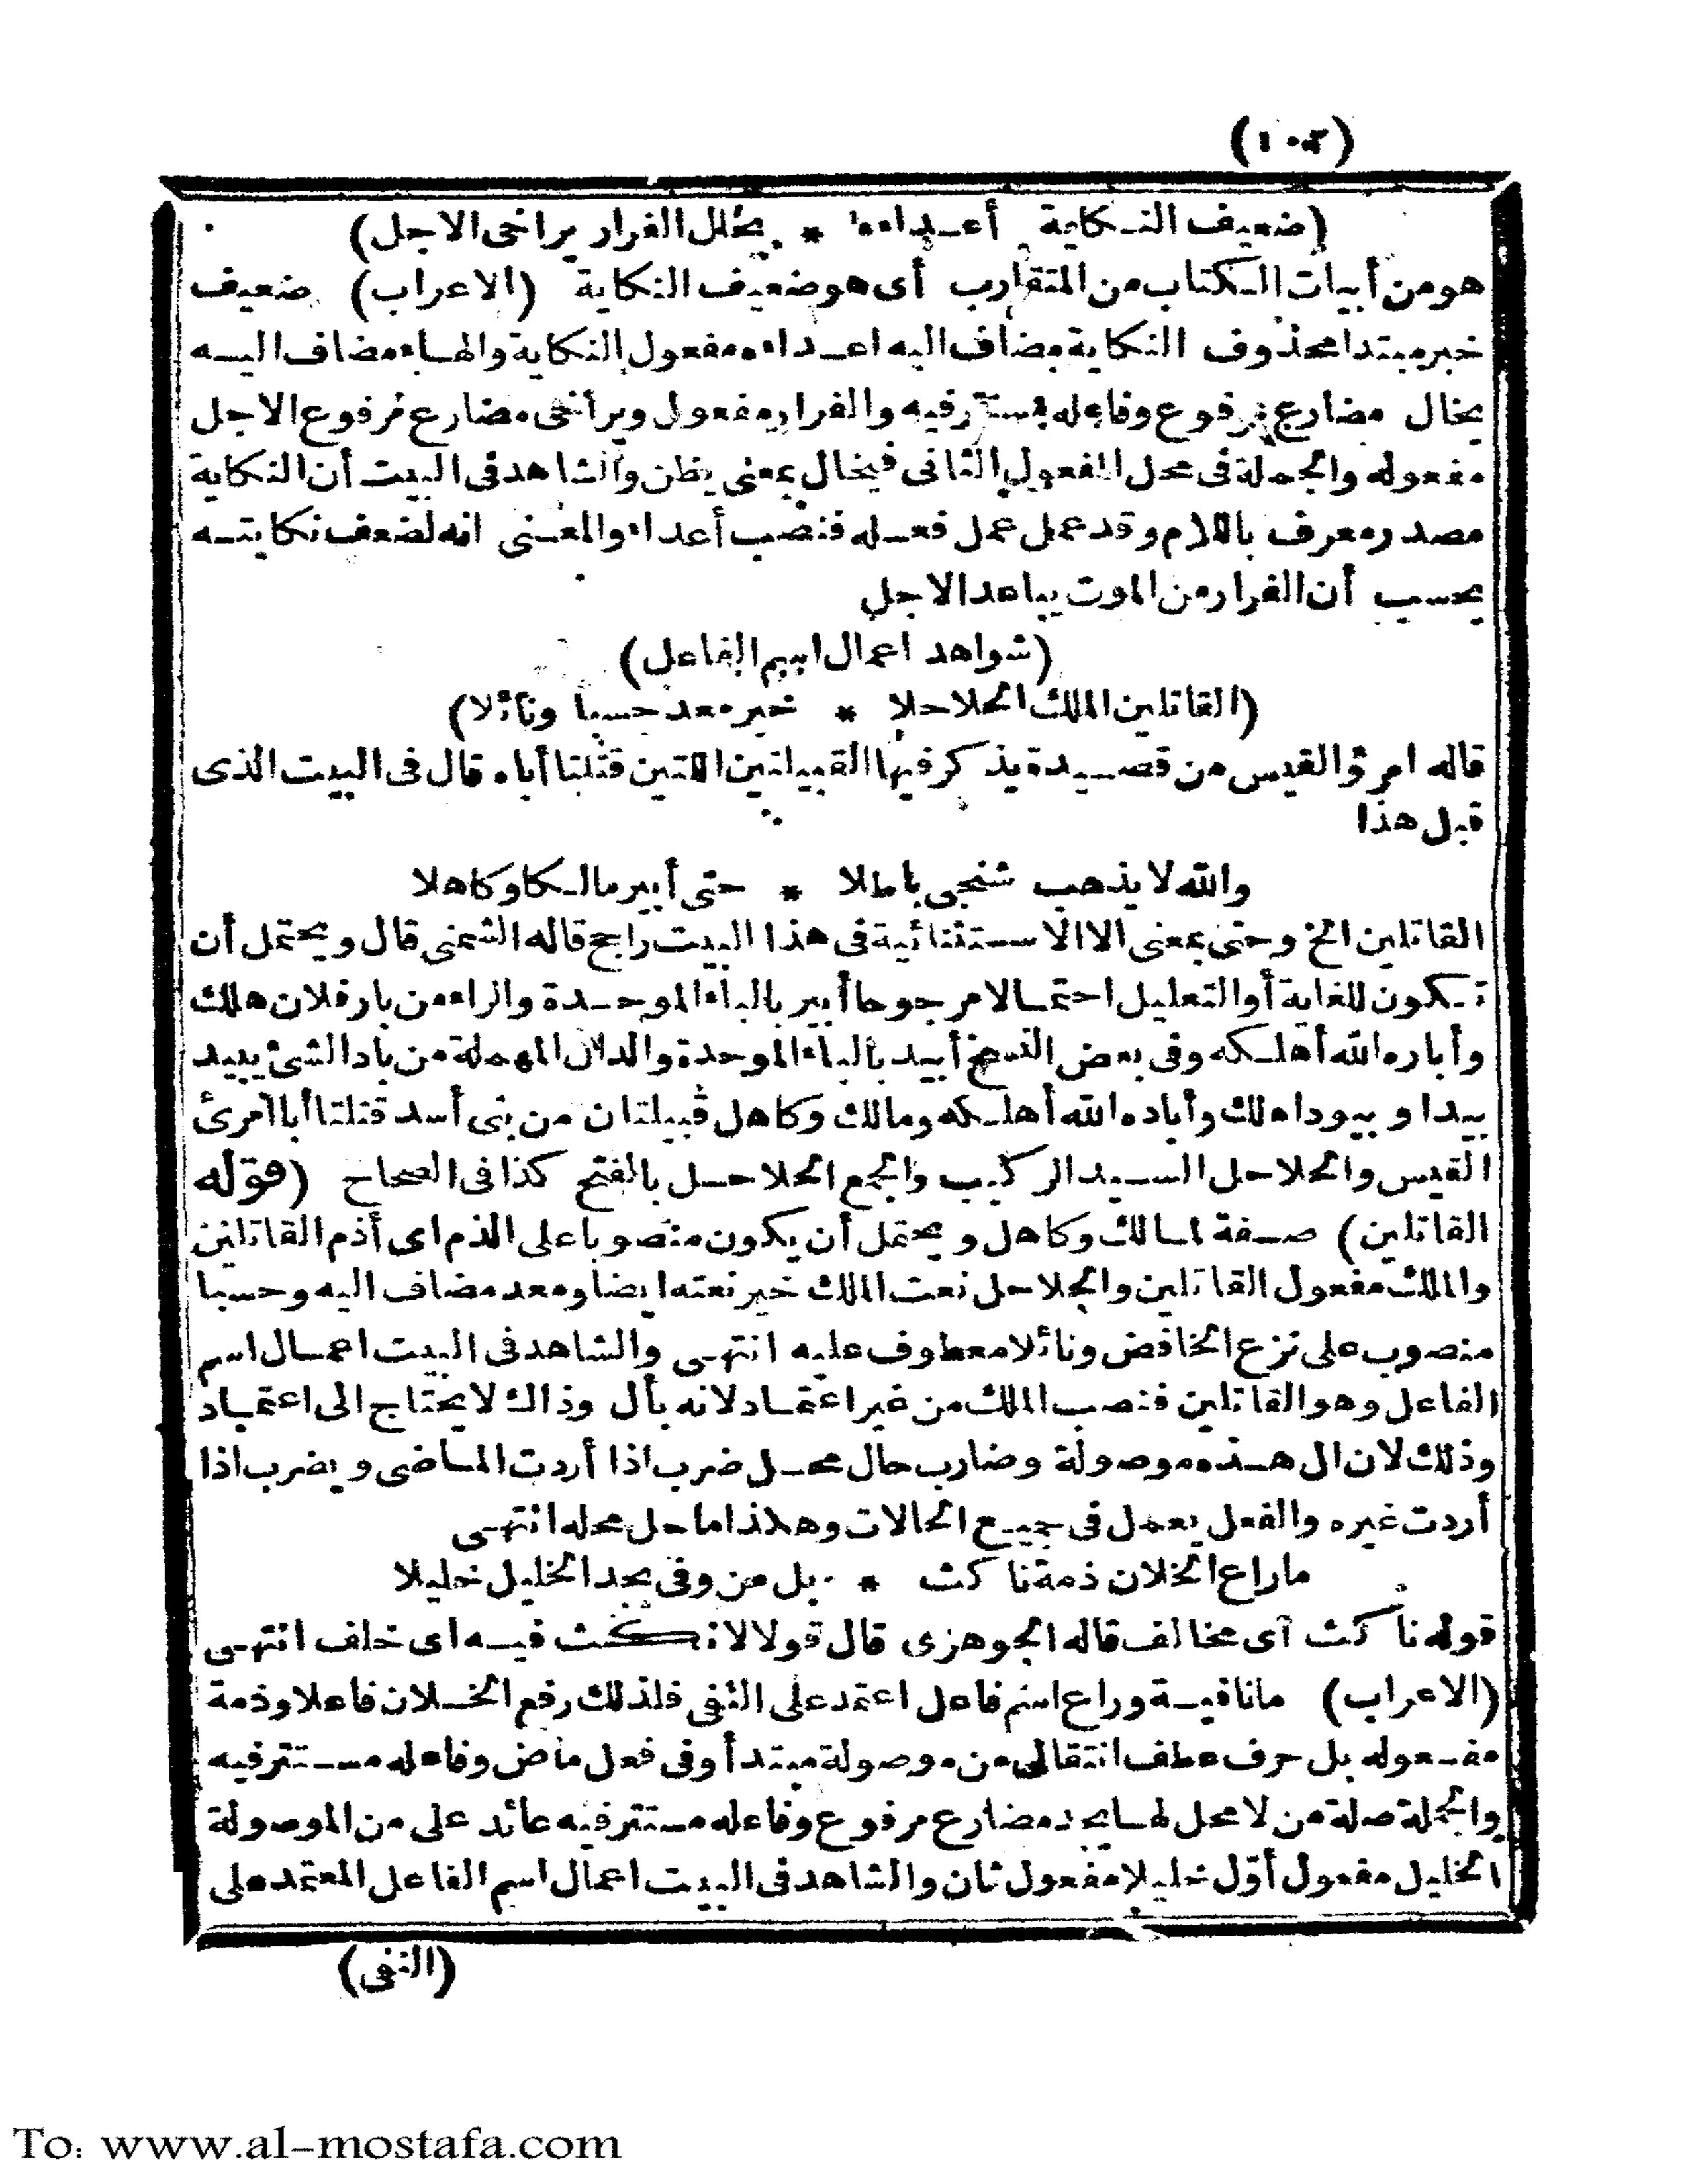 (١٠٢)
(ضعيف النكاية أعداءه * يخال الفرار يراخى الاجل)
هو من أبيات الكتاب من المتقارب أى هو ضعيف النكاية (الاعراب) ضعيف
خبر مبتدا محذوف النكاية مضاف اليه اعداءه مفعول النكاية والهاء مضاف اليه
يخال مضارع مرفوع وفاعله مستتر فيه والفرار مفعول ويراخى مضارع مرفوع الاجل
مفعوله والجملة فى محل المفعول الثانى فيخال بمعنى يظن والشاهد فى البيت أن النكاية
مصدر معرف باللام وقد عمل عمل فعله فنصب أعداء والمعنى انه لضعف نكايته
يحسب أن الفرار من الموت يباعد الاجل
(شواهد اعمال اسم الفاعل)
(القاتلين الملك الحلاحلا * خير معد حسبا ونائلا)
قاله امرؤ القيس من قصيدة يذكر فيها القبيلتين اللتين قتلتا أباه قال فى البيت الذى
قبل هذا
والله لا يذهب شنجى باطلا * حتى أبير مالكا وكاهلا
القاتلين الخ وحتى بمعنى الا الاستثنائية فى هذا البيت راجح قاله الشمنى قال ويحتمل أن
تكون للغاية أو التعليل احتمالا مرجوحا أبير بالباء الموحدة والراء من بار فلان هلك
وأباره الله أهلكه وفى بعض النسخ أبيد بالباء الموحدة والدال المهملة من باد الشئ يبيد
بيدا وبيودا هلك وأباده الله أهلكه ومالك وكاهل قبيلتان من بنى أسد قتلتا أبا امرئ
القيس والحلاحل السيد الركيب والجمع الحلاحل بالفتح كذا فى الصحاح (قوله
القاتلين) صفة لمالك وكاهل ويحتمل أن يكون منصوبا على الذم اى أذم القاتلين
والملك مفعول القاتلين والحلاحل نعت الملك خير نعته ايضا ومعد مضاف اليه وحسبا
منصوب على نزع الخافض ونائلا معطوف عليه انتهى والشاهد فى البيت اعمال اسم
الفاعل وهو القاتلين فنصب الملك من غير اعتماد لانه بأل وذاك لا يحتاج الى اعتماد
وذلك لان ال هذه موصولة وضارب حال محل ضرب اذا أردت الماضى ويضرب اذا
أردت غيره والفعل يعمل فى جميع الحالات وهكذا ما حل محله انتهى
ما راع الخلان ذمة ناكث * بل من وفى يجد الخليل خليلا
قوله ناكث آى مخالف قاله الجوهرى قال قولا لا نكث فيه اى خلف انتهى
(الاعراب) ما نافية وراع اسم فاعل اعتمد على النفى فلذلك رفع الخلان فاعلا وذمة
مفعوله بل حرف عطف انتقالى من موصولة مبتدأ وفى فعل ماض وفاعله مستتر فيه
والجملة صلة من لا محل لها يجد مضارع مرفوع وفاعله مستتر فيه عائد على من الموصولة
الخليل مفعول أوّل خليلا مفعول ثان والشاهد فى البيت اعمال اسم الفاعل المعتمد على
(النفى)
To: www.al-mostafa.com